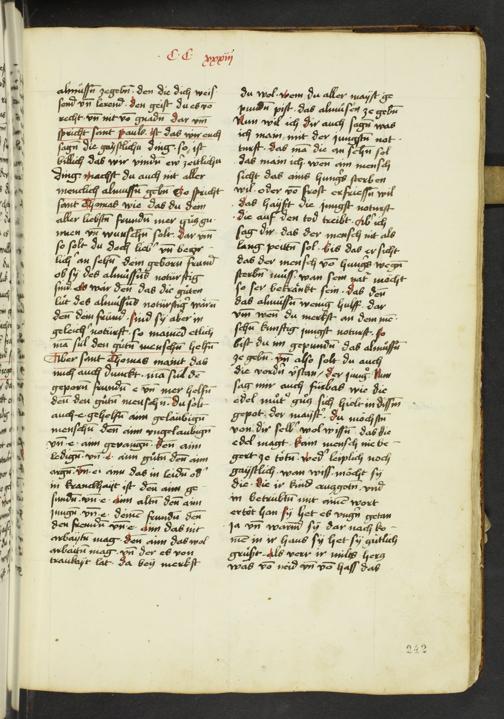 C C xxxiij
almůssn̄ zegebn̄. den die dich weis
send vn̄ lerend. den geist du es vō
recht vn̄ nit vō gnadn̄ dar vm̄
spricht sant pauls. ist das wir euch
sagn̄ die gaÿstlichn̄ ding. so ist
billich das wir vmdn̄ ew̄ zeitlichn̄
ding. machst du auch nit aller
menclich almůssn̄ gebn̄ So spricht
sant Thomas wie das du dem
aller liebstn̄ freundn̄ mer gůcz gu-
nnen vn̄ wunschn̄ solt. dar vm̄
so solt du doch lieb vn̄ begir-
lich an sehn̄ dem geborn̄ freund
ob sÿ des almůssn̄s notürftig
sind. es wär den das die gůten
lüt des almůssn̄s notürftig wärn̄
denn dein freund. sind sÿ aber in
geleich noturft. so mainēd etlich
ma sül den gůtn̄ menschn̄ helfn̄
Aber sant Thomas maint das
mich auch dunckt. ma sül de
geporn̄ freundn̄ e vn̄ mer helfn̄
den den gůtn̄ menschn̄. du solt
auch e gehelfn̄ aim gelaubign̄
menschn̄ den aim vngelaubign̄
vn̄ e aim gevangn̄. den aim
ledign̄. vn̄ e aim gůtn̄ den aim
argn̄. vn̄ e aim das in leidn̄ od̄
in kranckhayt ist. den aim ge
sundn̄. vn̄ e aim altn̄ den aim
jungn̄. vn̄ e deinē freundn̄ den
den fremdn̄ vn̄ e aim das nit
arbaytn̄ mag. den aim das wol
arbaytn̄ mag. vn̄ der es von
traukayt lat. da beÿ merkst
du wol. wem du aller maÿst ge
pundn̄ pist. das almůsen ze gebn̄
Nun wil ich dir auch sagn̄ was
ich main mit der jungstn̄ not
turft. das ma die an sehn̄ sol
das main ich wen ain mensch
sicht das ains hungs sterben
wil. oder vō frost erfriessn̄ wil
das haÿst die jungst noturft
die auf den tod treibt. Ab̄ ich
sag dir das der mensch nit als
lang peitn̄ sol. bis das er sicht
das der mensch vō hungs wegn̄
sterbn̄ müss. wan sein nat̄ möcht
so ser bekränkt sein. das den̄
das almůssn̄ wenig hulff. dar
vm̄ wen du merkst an dem mē-
schn̄ kunftig jungst noturft. so
bist du im gepundn̄ das almůssn̄
ze gebn̄. vn̄ also solt du auch
die vordn̄ vstan̄. der jung Nun
sag mir auch fürbas wie die
edel můt̄ gůz sich hielt in disem
gepot. der maÿst̄ du möchtst
von dir selb̄ wol wissn̄. das die
edel magt. kain mensch nie be-
gert ze tötn̄. wed̄ leiplich noch
gaÿstlich. wan wiss. möcht sÿ
die. die ir kind auzzogtn̄. vnd
in betrubtn̄ mit ainē wort
ertöt han sÿ het es vngn̄ getan
ja vn̄ warn̄ sÿ dar nach ko-
mē in ir haus sÿ het sÿ gütlich
grüsst. Als verr ir miltes hercz
was vō neid vn̄ vō hass das
242